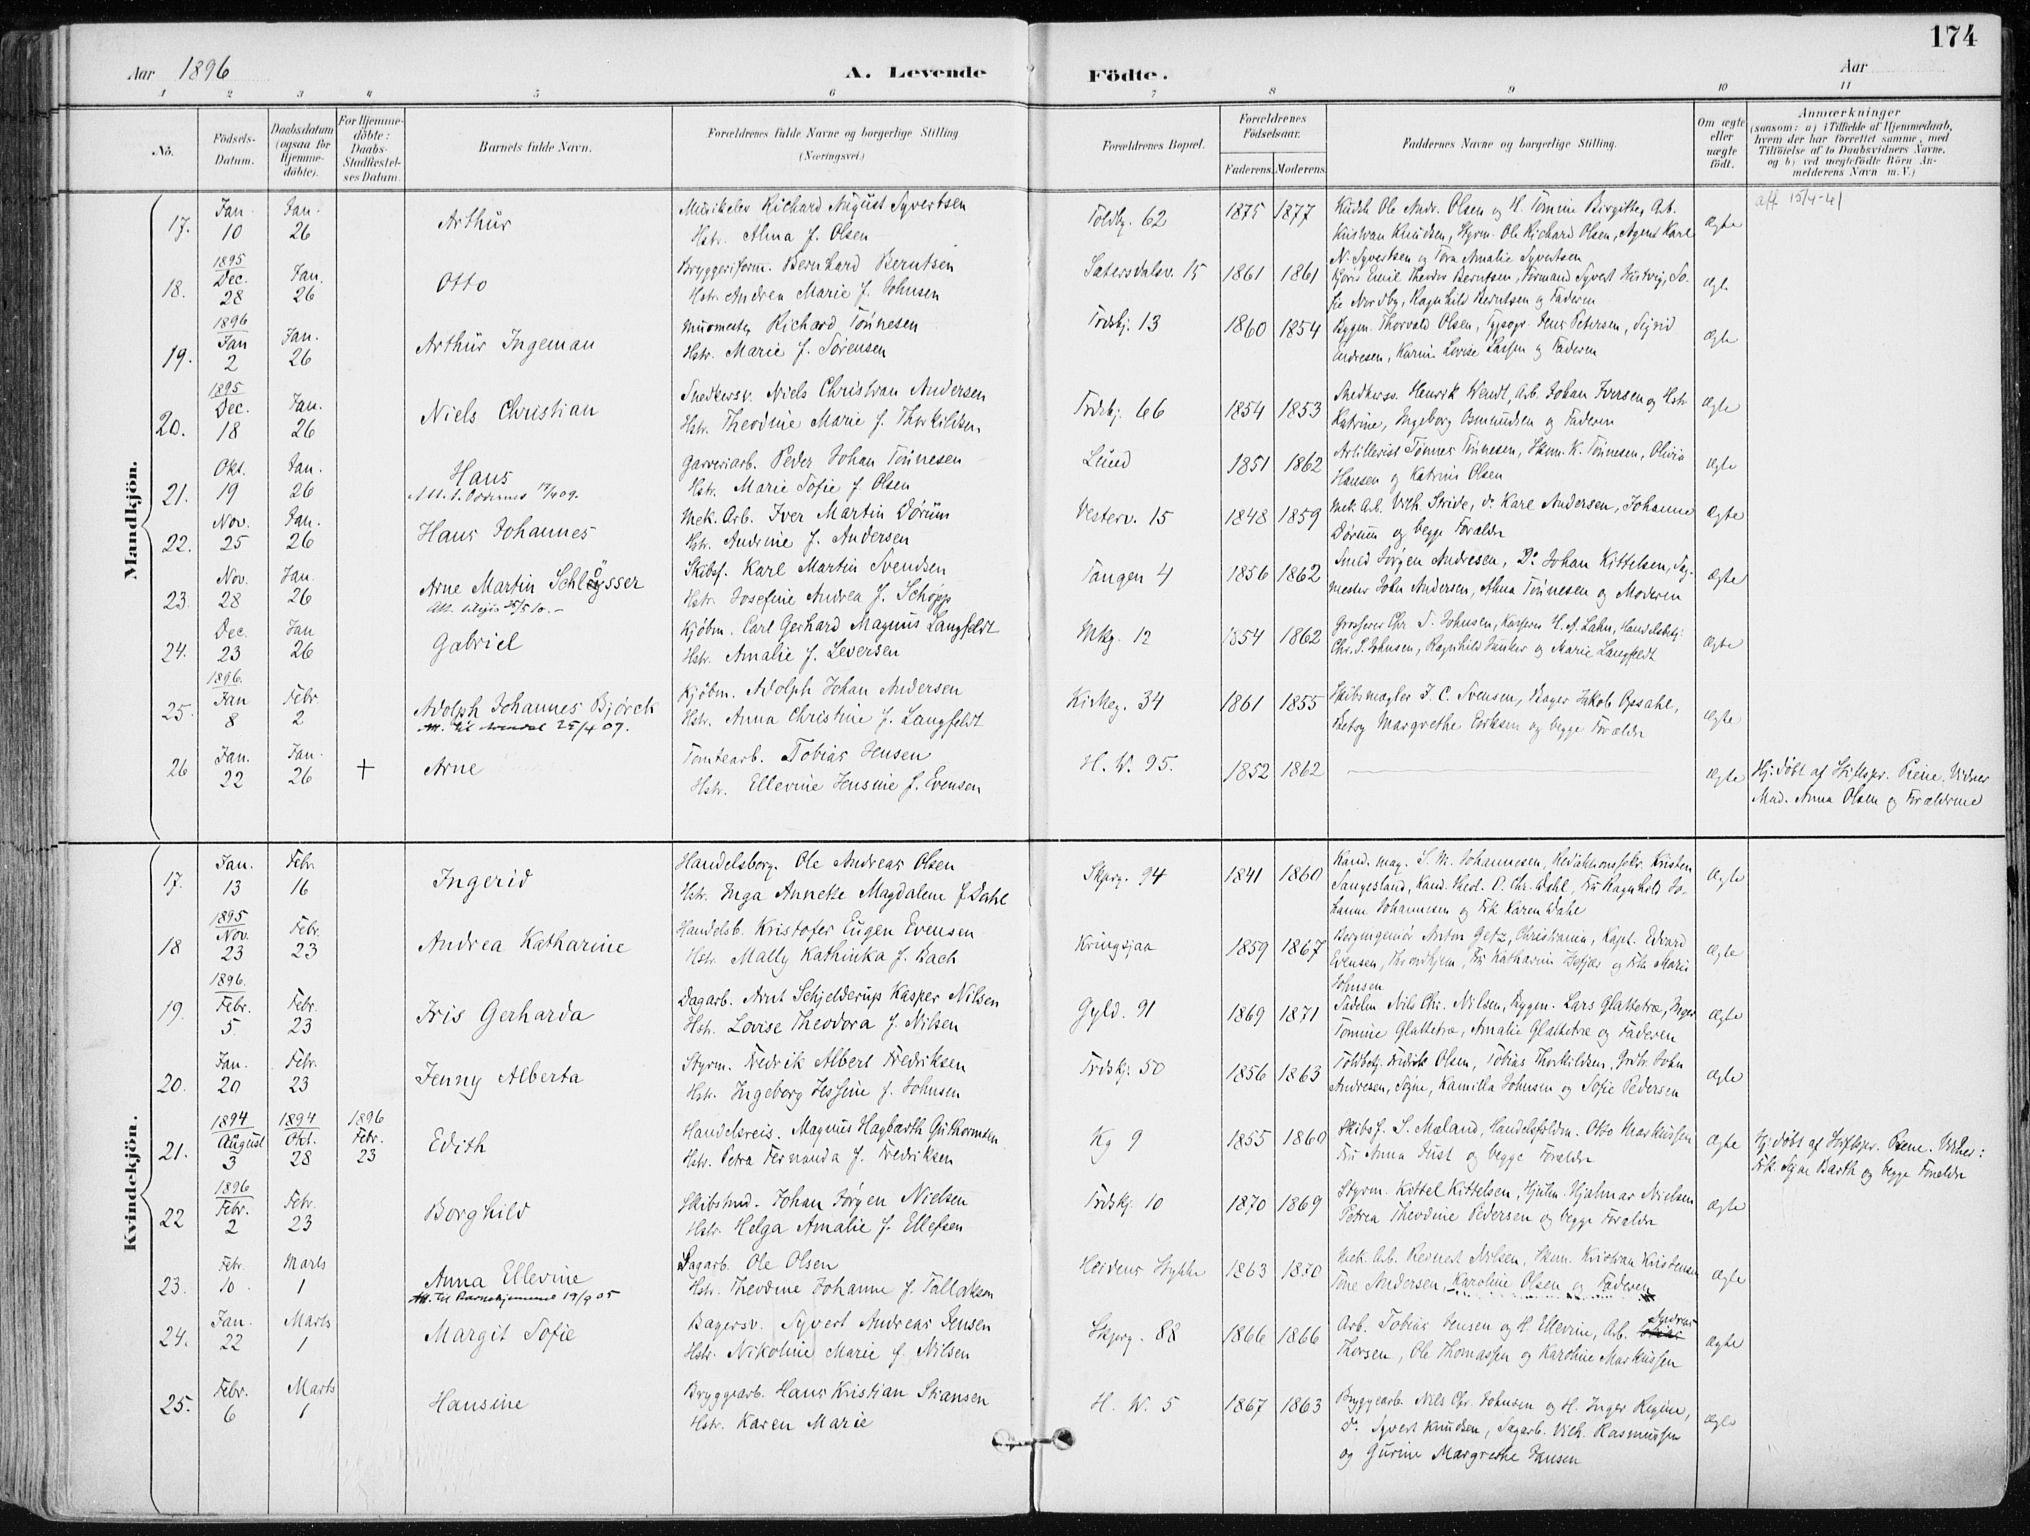 174
Aar 1896
A. Levende
Födte.
Aar
1 2 3 4 5 6 7 8 9 10 11
No.
Födsels-Datum.
Daabsdatum (ogsaa for Hjemme-döbte).
For Hjemme-döbte: Daabs-Stadfæstel-ses Datum.
Barnets fulde Navn.
Forældrenes fulde Navne og borgerlige Stilling (Næringsvei.)
Forældrenes Bopæl.
Forældrenes Födselsaar.
Faderens. Moderens.
Faddernes Navne og borgerlige Stilling.
Om ægte eller uægte födt.
Anmærkninger
(saasom: a) i Tilfælde af Hjemmedaab, hvem der har forrettet samme, med Tilföielse af to Daabsvidners Navne, og b) ved uægtefödte Börn An-melderens Navn m. V.)
Mandkjön.
17. Jan. 10 Jan. 26 Arthur
Musikelev Richard August Syvertsen
Hstr. Alma f. Olsen
Toldbg. 62 1875 1877
Ole Andr. Olsen og H. Tomine Birgitte, Arb.
Kristian Knudsen, Styrm. Ole Richard Olsen, Agent Karl
N. Syvertsen og Tora Amalie Syvertsen
ægte
att 15/4-41
18. 1895 Dec. 28 Jan. 26 Otto
Bryggeriform. Bernhard Berntsen
Hstr. Andrea Marie f. Johnsen
Sætersdalsv. 15 1861 1861
Emil Theodor Berntsen, Formand Syvert
Nordby, Ragnhild Berntsen og Faderen
ægte
19. 1896 Jan 2 Jan. 26 Arthur Ingeman
Murmester Richard Tönnesen
Hstr. Marie f. Sørensen
Frdskj. 13 1860 1854
Bygm. Thorvald Olsen, Typogr. Jens Petersen, Sigrid
Andresen, Karin Lovise Larsen og Faderen
ægte
20. 1895 Dec. 18 Jan. 26 Niels Christian
Snedkersv. Niels Christian Andersen
Hstr. Theodine Marie f. Thorkildsen
Frdskj. 66 1854 1853
Snedkersv. Henrik Wendt, Arb. Johan Iversen og Hstr
Katrine, Ingeborg Osmundsen og Faderen
ægte
21. Okt. 19 Jan. 26 Hans
Att. t. Oddernes 17/6 09.
Garveriarb. Peder Johan Tönnesen
Hstr. Marie Sofie f. Olsen
Lund 1851 1862
Artillerist Tönnes Tönnesen, Skom. K. Tönnesen, Olivia
Hansen og Katrine Olsen
ægte
22. Nov. 25 Jan. 26 Hans Johannes
Mek. Arb. Iver Martin Dørum
Hstr. Andrine f. Andersen
Vesterv. 15 1848 1859
Mek Arb. Vilh. Skeide, do Karl Andersen, Johanne
Dørum og begge Forældre
ægte
23. Nov. 28 Jan. 26 Arne Martin Schløysser
Skibsf. Karl Martin Svendsen
Hstr. Josefine Andrea f. Schöpp
Tangen 4 1856 1862
Smed Jørgen Andresen, Do Johan Kittelsen,
mester John Andersen, Alma Tönnesen og Moderen
ægte
24. Dec. 23 Jan 26 Gabriel
Kjøbm. Carl Gerhard Magnus Langfeldt
Hstr. Amalie f. Seversen
Mkg. 12 1854 1862
Grosserer Chr. S. Johnsen, Kasserer H. A. Lahn, Handelsbetj.
Chr. S. Johnsen, Ragnhild Junker og Marie Langfeldt
ægte
25. 1896. Jan 8 Febr 2 Adolph Johannes Bjørck
Att. til Arendal 25/4 07.
Kjøbm. Adolph Johan Andersen
Hstr. Anna Christine f. Langfeldt
Kirkeg. 34 1861 1855
Skibsmægler J. C. Svensen, Bager Jakob Opsahl,
Betsy Margrethe Eriksen og begge Forældre
ægte
26 Jan. 22 Jan. 26 + Arne
Tomtearb. Tobias Jensen
Hstr. Ellevine Jensine f. Evensen
H. V. 95. 1852 1862
ægte
Hj. døbt af Stiftspr. Riene. Vidner
Mad. Anna Olsen og Forældrene
Kvindekjön.
17. Jan. 13 Febr. 16 Ingerid
Handelsborg. Ole Andreas Olsen
Hstr. Inga Annette Magdalene f Dahl
Skprg. 94 1841 1860
Kand. mag. S. M. Johannesen, Redaktionssekr. Kristen
Sangesland, Kand. theol. O. Chr. Dahl, Fru Ragnhild Jo-
hanne Johannesen og Frk. Karen Dahl
ægte
18 1895 Nov. 23 Febr. 23 Andrea Katharine
Handelsb. Kristofer Eugen Evensen
Hstr. Mally Kathinka f. Bach
Kringsjaa 1859 1867
Bergingeniør Anton Getz, Christiania, Kapt. Edvard
Evensen, Throndhjem, Fru Katharine og Frk. Marie
Johnsen
ægte
19. 1896. Febr. 5 Febr. 23 Iris Gerharda
Dagarb. Arnt Schjelderup Kasper Nilsen
Hstr. Lovise Theodora f. Nilsen
Gyld. 91 1869 1871
Nils Chr. Nilsen, Bygm. Lars Glattetræ, Inger
Tomine Glattetræ, Amalie Glattetræ og Faderen
ægte
20. Jan. 20 Febr. 23 Jenny Alberta
Styrm. Fredrik Albert Fredriksen
Hstr. Ingeborg Jessine f. Johnsen
Frdskj. 50 1856 1863
Toldbetj. Fredrik Olsen, Tobias Thorkildsen, John
Andresen, Sogne, Kamilla Johnsen og Sofie Pedersen
ægte
21. 1894 August 3 1894 Okt. 28 1896 Febr. 23 Edith
Handelsreis. Magnus Hagbarth Guthormsen
Hstr. Petra Fernanda f. Fredriksen
Kg 9 1855 1860
Skibsf. S. Mæland, Handelsfuldm. Otto Markussen
Fru Anna Just og begge Forældre
ægte
Hj. døbt af Stiftspr. Riene. Vidner:
Frk. Signe Barth og begge Forældre
22 1896 Febr. 2 Febr. 23 Borghild
Skibstmd. Johan Jørgen Nielsen
Hstr. Helga Amalie f. Ellefsen
Frdskj. 10 1870 1869
Styrm. Kittel Kittelsen, Hjulm. Hjalmar Nielsen
Petrea Theodine Pedersen og begge Forældre
ægte
23. Febr. 10. Marts 1 Anna Ellevine
Att. til Barnehjemmet 19/9 05
Dagarb. Ole Olsen
Hstr. Theodine Johanne f. Tallaksen
Stykke 1863 1870
Mek. Arb. Reinert Nilsen, Skom. Kristian Kristensen
Tine Andersen, Karoline Olsen og Faderen
ægte
24. Jan. 22 Marts 1 Margit Sofie
Bagersv. Syvert Andreas Jensen
Hstr. Nikoline Marie f. Nilsen
Skprg. 88 1866 1866
Arb. Tobias Jensen og H. Ellevine, Arb. Andreas
Thorsen, Ole Thomassen og Karoline Markussen
ægte
25. Febr. 6 Marts 1 Hansine
Bryggearb. Hans Kristian Stiansen
Hstr. Karen Marie
H. V. 5 1867 1863
Bryggearb. Nils Chr. Johnsen og H. Inger Regine,
do. Syvert Knudsen, Sagarb. Vilh. Rasmussen
og Gurine Margrethe Hansen
ægte